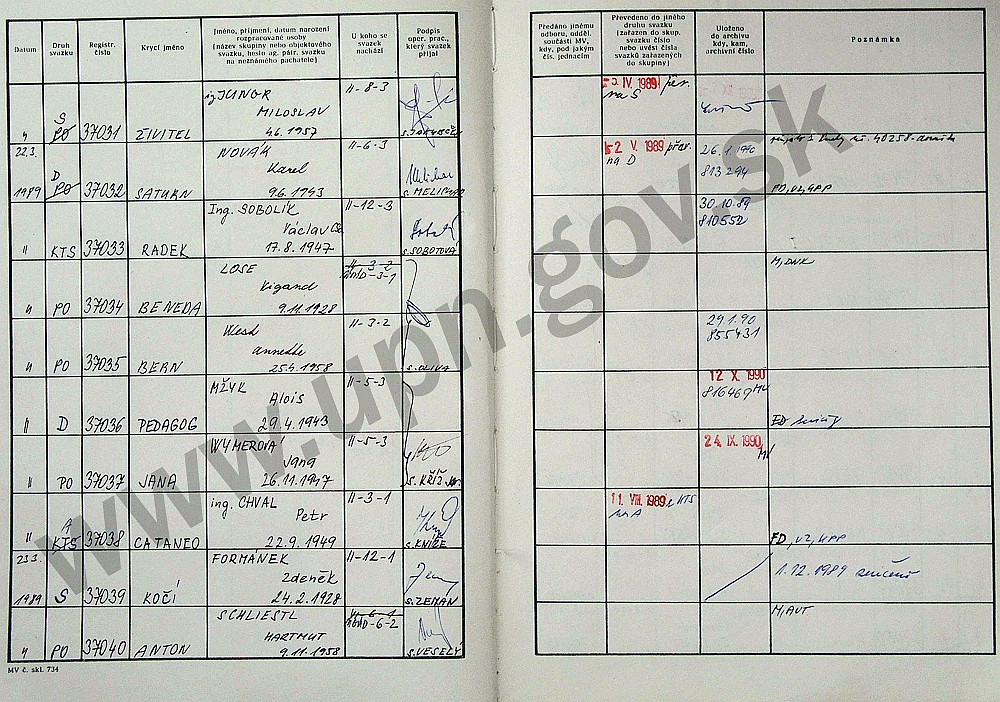 Datum
Druh svazku
Registr. číslo
Krycí jméno
Jméno, příjmení, datum narození
rozpracované osoby
(název skupiny nebo objektového
svazku, heslo ag. pátr. svazku
na neznámého pachatele)
U koho se
svazek
nachází
Podpis
oper. prac.,
který svazek
přijal
Předáno jinému
odboru, odděl.
součásti MV,
kdy, pod jakým
čís. jednacím
Převedeno do jiného
druhu svazku
(zařazen do skup.
svazku číslo
nebo uvést čísla
svazků zařazených
do skupiny)
Uloženo
do archivu
kdy, kam,
archivní číslo
Poznámka
ing JUNGR II-8-3 IV. 1989 přev.
S MILOSLAV na S
" PO 37031 ŽIVITEL 4.6.1957
22.3. NOVÁK II-6-3 2 V. 1989 přev. 26.1.1990
D Karel na D 813294
1989 PO 37032 SATURN 9.6.1943 s. MELICHAR FD, VZ, 4PP
Ing. SOBOLÍK II-12-3 30.10.89
Václav CSc 810550
" KTS 37033 RADEK 17.8.1947 s. SOBOTOVÁ
LOSE II-3-2 M, DNK
Vigand D-3-1
" PO 37034 BENEDA 9.11.1928
II-3-2 29.1.90
Annette 855431
" PO 37035 BERN 25.4.1958 s. OLIVA
MŽYK II-5-3 12. X. 1990
Alois 816469 MV
" D 37036 PEDAGOG 29.4.1943
WYMEROVÁ II-5-3 24. IX. 1990
Jana MV
" PO 37037 JANA 26.11.1947 s. KŘÍŽ
ing. CHVAL II-3-1 11. VIII. 1989 z KTS
A Petr na A
" KTS 37038 CATANEO 22.9.1949 s. KNÍŽE FD, VZ, 4PP
23.3. FORMÁNEK II-12-1
Zdeněk 1.12.1989 zničeno
1989 S 37039 KOČÍ 24.2.1928 s. ZEMAN
SCHLIESTL II-6-1 M, AUT
HARTMUT D-6-2
" PO 37040 ANTON 9.11.1958 s. VESELÝ
MV č. skl. 734
www.upn.gov.sk